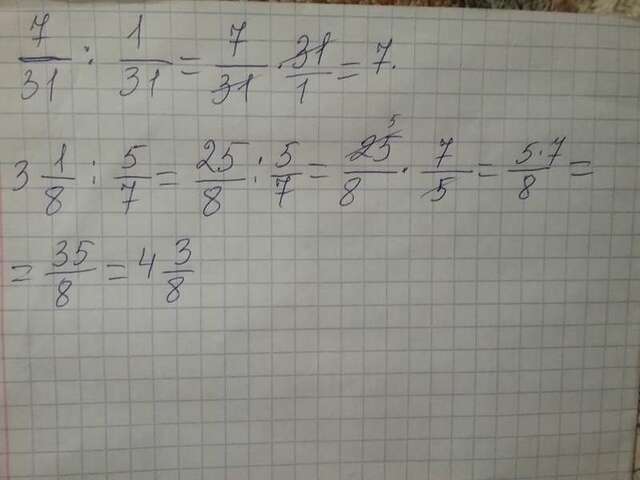 7/31 : 1/31 = 7/31 · 31/1 = 7.
3 1/8 : 5/7 = 25/8 : 5/7 = 25 5/8 · 7/5 = 5·7/8 =
= 35/8 = 4 3/8